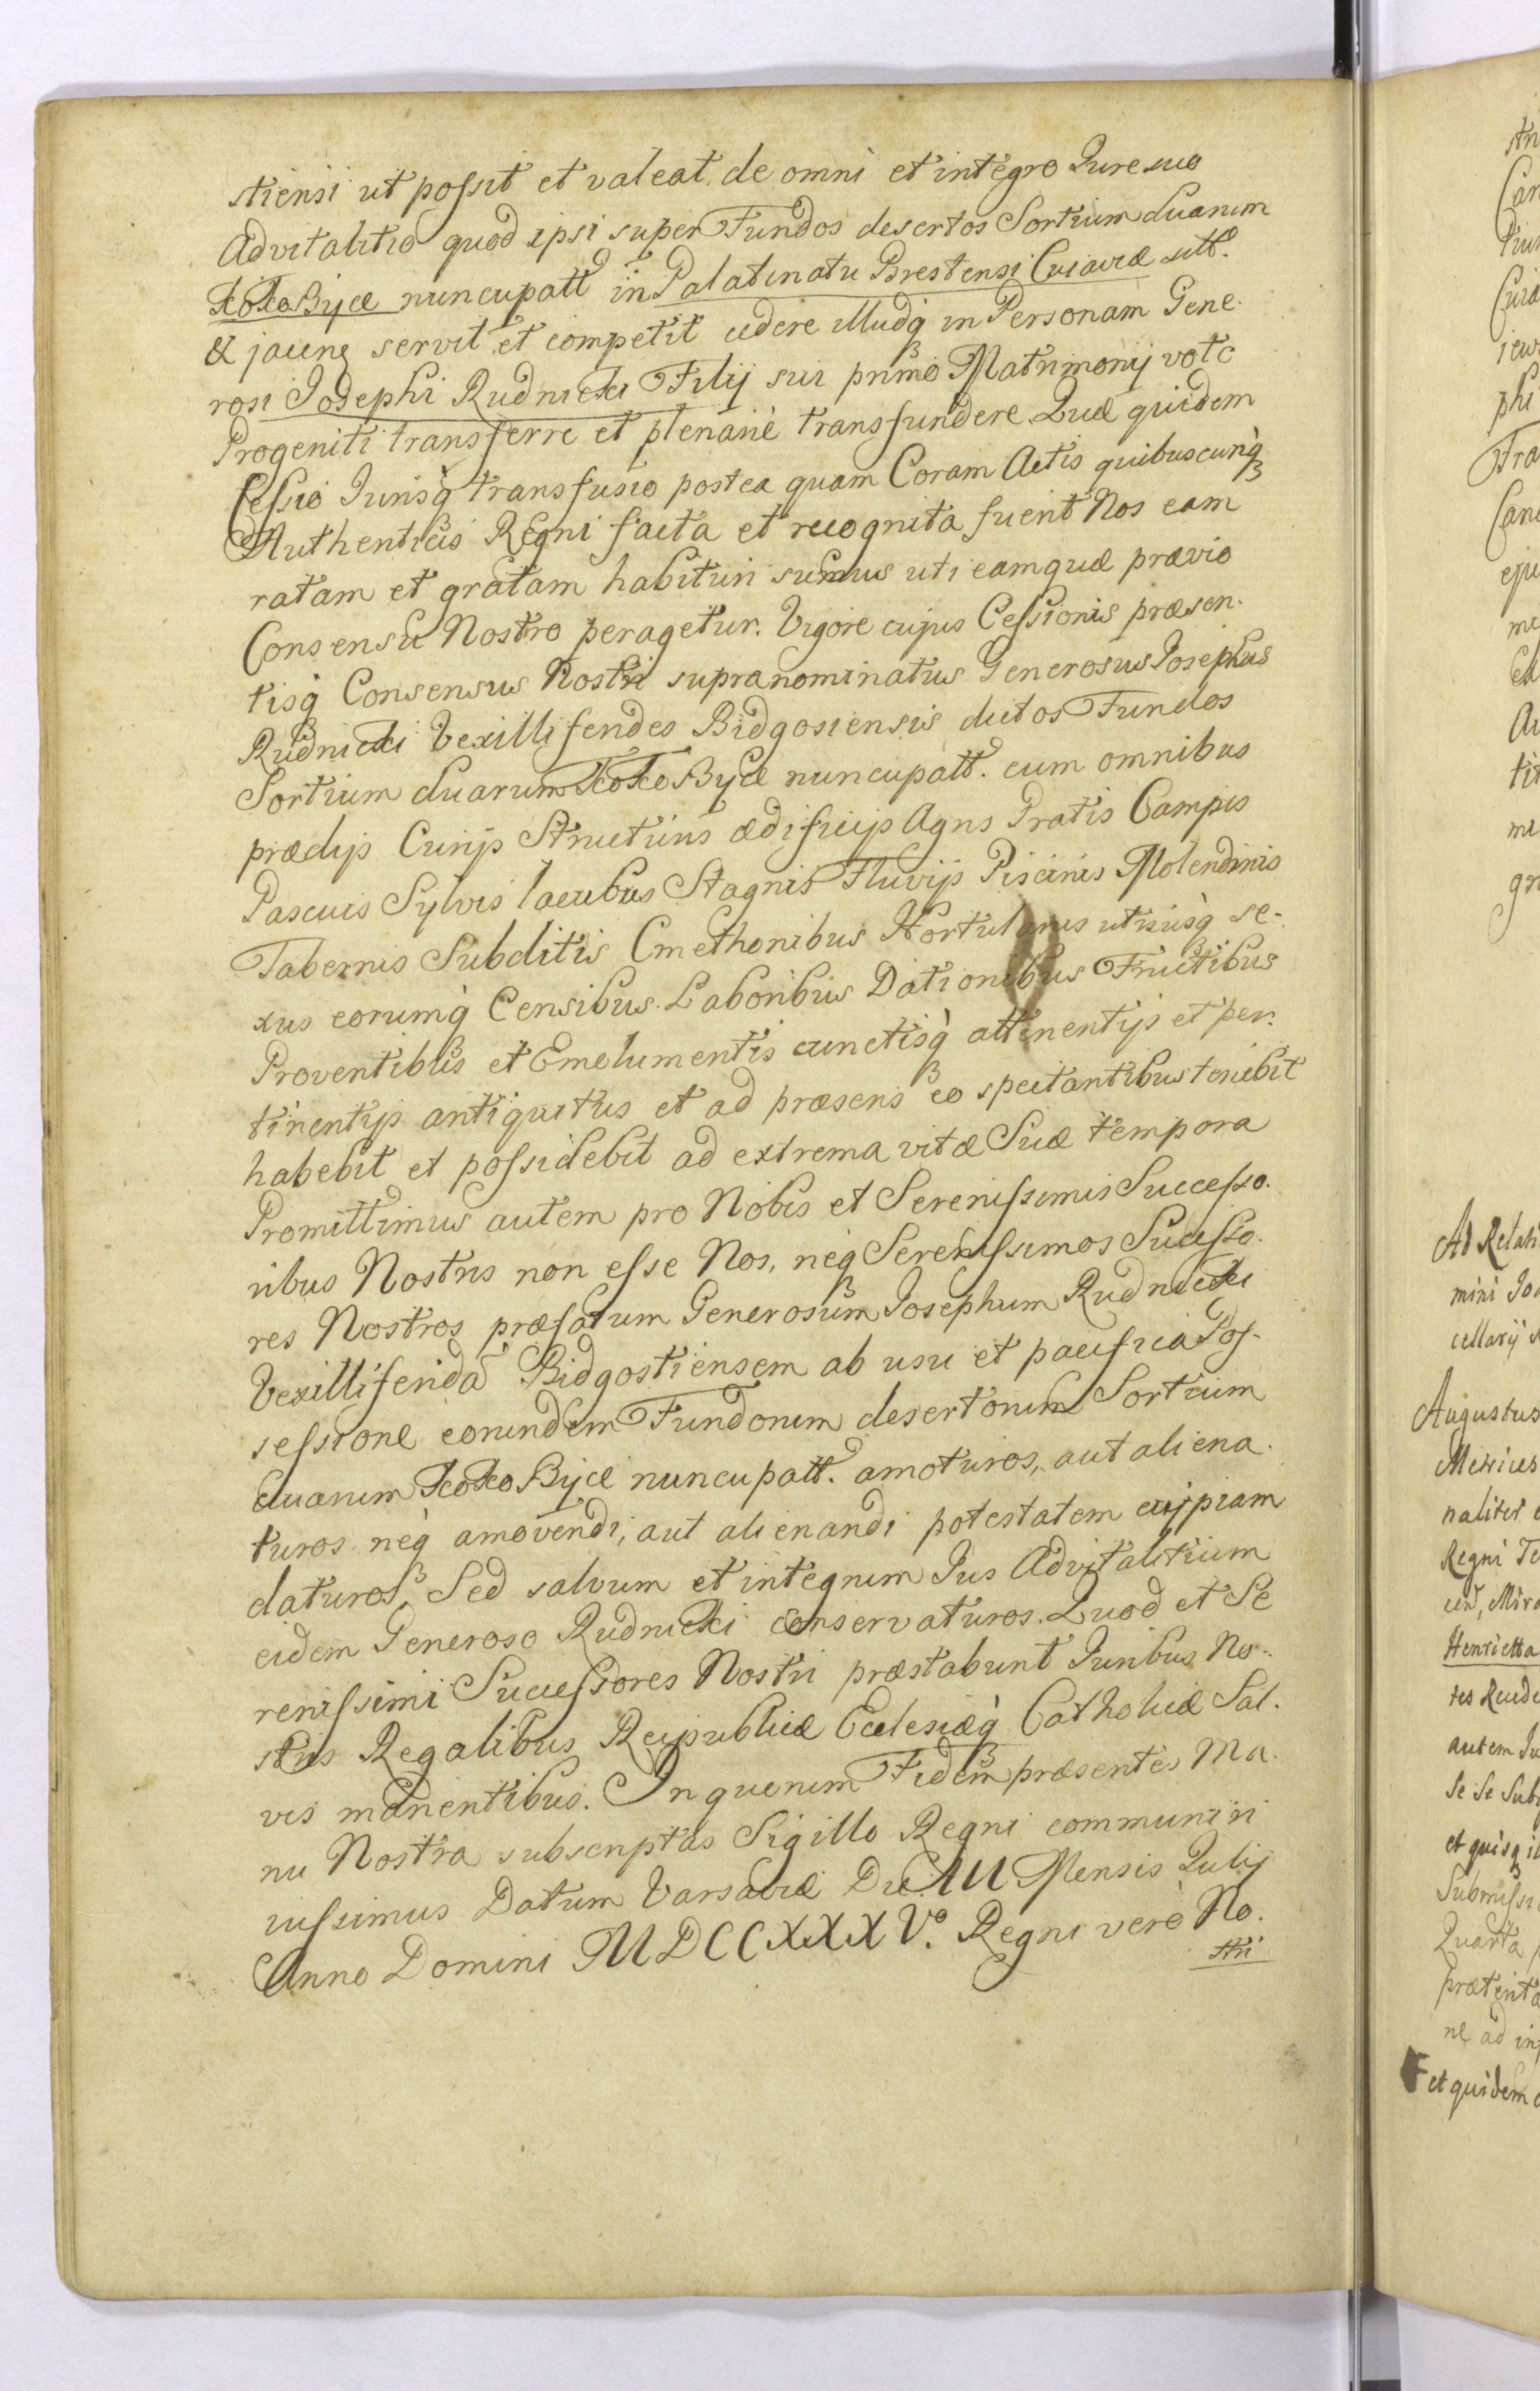 stiensi ut possit et valeat de omni et integro Jure suo
Advitalitio quod ipsi super Fundos desertos Sortium duarum
KokoByce nuncupatt in Palatinatu Brestensi Cuiaviæ sitt.
& jacen servit et competit cedere illudq in Personam Gene
rosi Josephi Rudnicki Filij sui primo Matrimonij voto
Progeniti transferre et plenarie transfundere. Quæ quidem
Cessio Jurisq transfusio postea quam Coram Actis quibuscunq
Authenticis Regni facta et recognita fuerit Nos eam
ratam et gratam habituri sumus uti eamquæ prævio
Consensu Nostro peragetur. Vigore cujus Cessionis præsen-
tisq Consensus Nostri supranominatus Generosus Josephus
Rudnicki Vexillifendes Bidgosiensis dictos Fundos
Sortium duarum KokoByce nuncupatt. cum omnibus
prædijs Curijs Structuris ædificijs Agris Pratis Campis
Pascuis Sylvis lacubus Stagnis Fluvijs Piscinis Molendinis
Tabernis Subditis Cmethonibus Hortulanis utriusq se-
xus eorumq Censibus Laboribus Dationibus Fructibus
Proventibus et Emolumentis cunctisq attinentijs et per-
tinentijs antiquitus et ad præsens eo spectantibus tenebit
habebit et possidebit ad extrema vitæ Suæ tempora
Promittimus autem pro Nobis et Serenissimis Successo-
ribus Nostris non esse Nos, neq Serenissimos Successo-
res Nostros præfatum Generosum Josephum Rudnicki
Vexilliferida Bidgostiensem ab usu et pacifica Pos-
sessione eorundem Fundorum desertorum Sortium
duarum KokoByce nuncupatt. amoturos, aut aliena-
turos neq amovendi, aut alienandi potestatem cuipiam
daturos Sed salvum et integrum Jus Advitalitium
eidem Generoso Rudnicki conservaturos. Quod et Se
renissimi Successores Nostri præstabunt Juribus No-
stris Regalibus Reipublicæ Eclesiæq Catholicæ Sal-
vis manentibus. In quorum Fidem præsentes Ma-
nu Nostra subscriptas Sigillo Regni communiri
iussimus Datum Varsaviæ Die Mensis Julij
Anno Domini MDCCXXXVº. Regni vero No-
stri